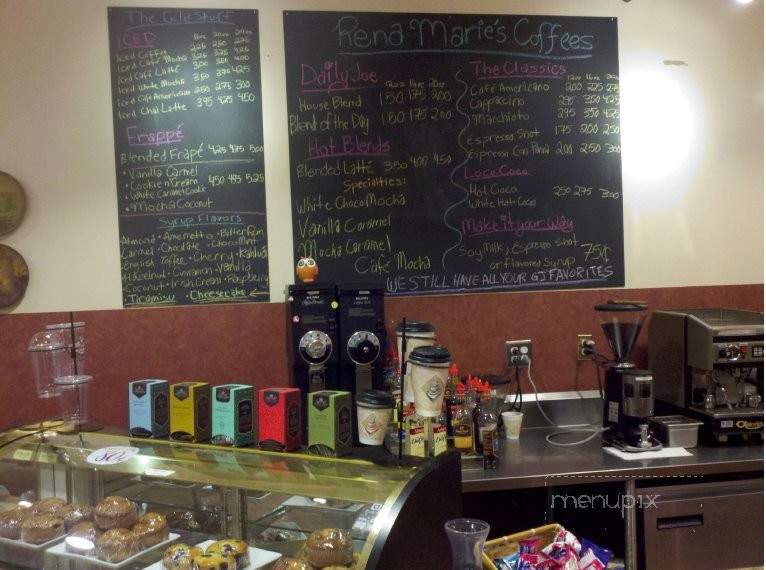 The Cold Stuff
ICED 16oz 20oz 24oz
Iced Coffee 225 250 275
Iced Café Mocha 325 375 425
Iced Café Latté 300 350 400
Iced White Mocha 350 390 425
Iced Café Americano 250 275 300
Iced Chai Latté 395 425 450
Frappé
Blended Frapé 425 475 500
• Vanilla Carmel
• Cookie n Cream 450 495 525
• White Caramel Cookie
• Mocha Coconut
Syrup Flavors
Almond • Ameretto • Butter Rum
Carmel • Chocolate • Choco Mint
English Toffee • Cherry • Kahlua
Hazelnut • Cinnamon • Vanilla
Coconut • Irish Cream • Raspberry
Tiramisu Cheesecake
Rena-Marie's Coffees
Daily Joe
12oz 16oz 20oz
House Blend 150 175 200
Blend of the Day 150 175 200
Hot Blends
Blended Latté 350 400 450
Specialties:
White Choco Mocha
Vanilla Caramel
Mocha Caramel
Café Mocha
The Classics
12oz 16oz 20oz
Café Americano 200 225 275
Cappacino 295 350 425
Macchioto 295 350 425
Espresso Shot 175 200 250
Espresso Con Panna 200 250 300
Loco Coco
Hot Coco 250 275 300
White Hot Coco
Make it your Way
Soy Milk, Espresso Shot
or Flavored Syrup 75¢
WE STILL HAVE ALL YOUR GJ FAVORITES
menupix